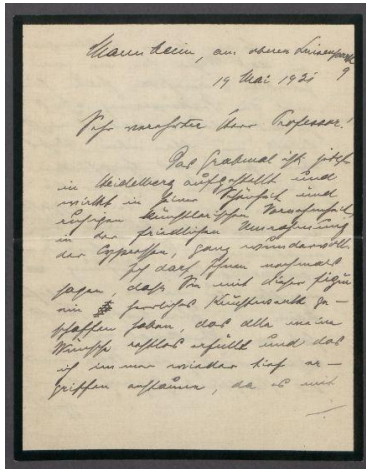 Mannheim, am oberen Luisenpark
9
19 Mai 1921
Sehr verehrter Herr Professor!
Das Grabmal ist jetzt
in Heidelberg aufgestellt und
wirkt in seiner Schönheit und
ruhigen künstlerischen Vornehmheit,
in der friedlichen Umrahmung
der Cypressen, ganz wundervoll.
Ich darf Ihnen nochmals
sagen, daß Sie mit dieser Figur
ein herrliches Kunstwerk ge-
schaffen haben, das alle meine
Wünsche restlos erfüllt und das
ich immer wieder tief er-
griffen anstaune, da es mit